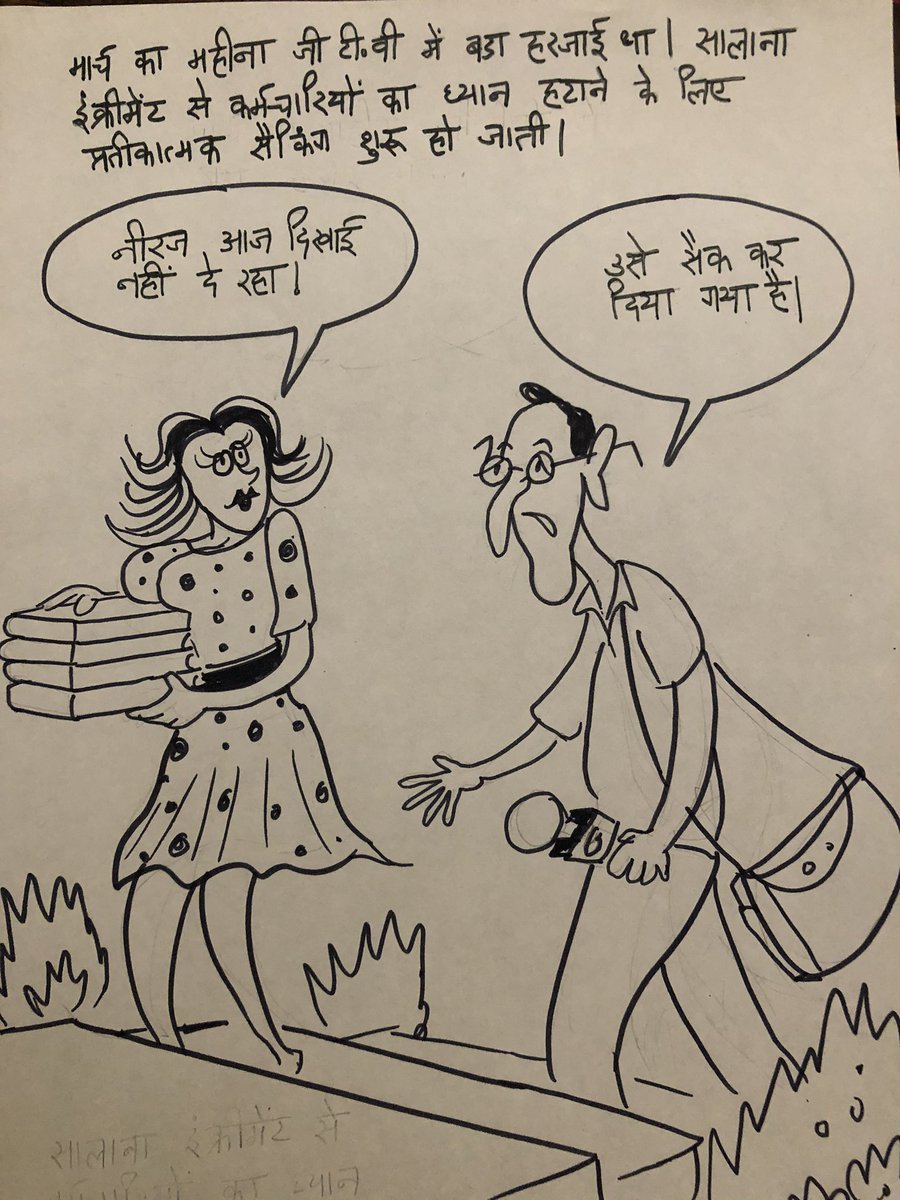 मार्च का महीना जी टी.वी में बडा हरजाई था। सालाना
इंक्रीमेंट से कर्मचारियों का ध्यान हटाने के लिए
प्रतीकात्मक सैकिंग शुरू हो जाती।
नीरज आज दिखाई
नहीं दे रहा।
उसे सैक कर
दिया गया है।
सालाना इंक्रीमेंट से
का ध्यान